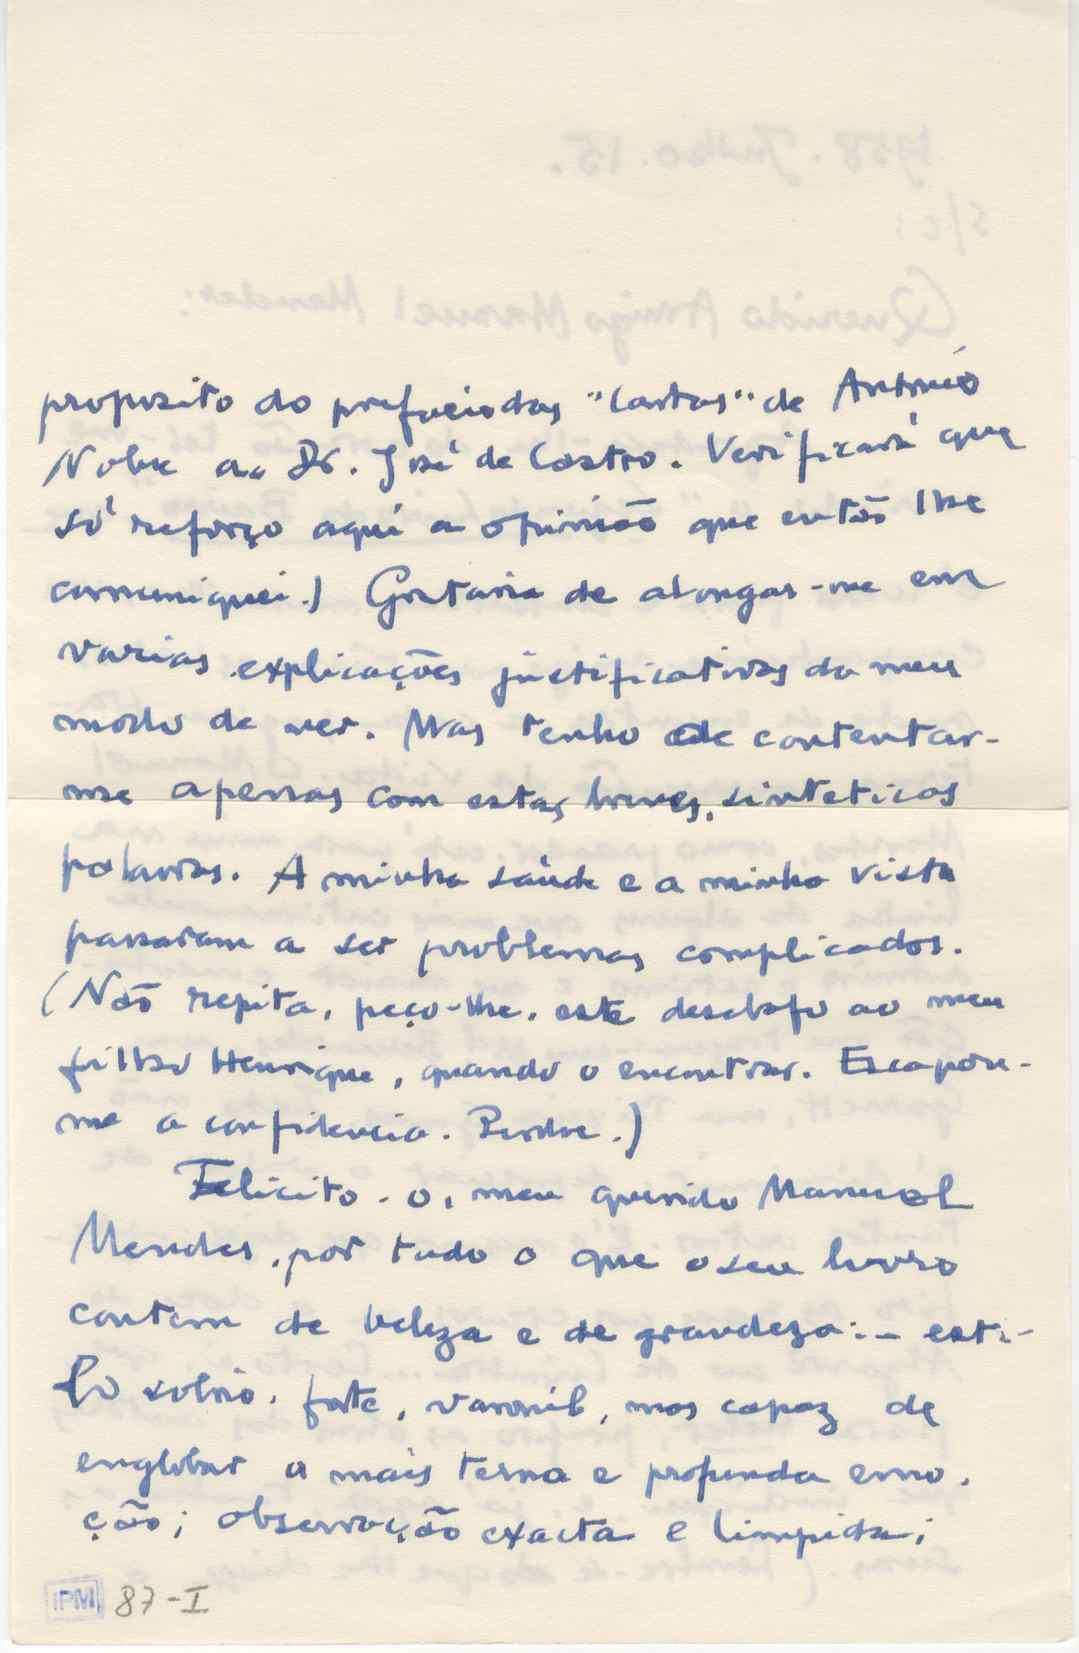 proposito do prefacio das "Cartas" de António
Nobre ao Dr. José de Castro. Verificará que
só reforço aqui a opinião que então lhe
comuniquei.) Gostaria de alongar-me em
varias explicações justificativas do meu
modo de ver. Mas tenho de contentar-
me apenas com estas breves, sinteticas
palavras. A minha saúde e a minha vista
passaram a ser problemas complicados.
(Não repita, peço-lhe, este desabafo ao meu
filho Henrique, quando o encontrar. Escapou-
me a confidencia. Perdoe.)
Felicito-o, meu querido Manuel
Mendes, por tudo o que o seu livro
contem de beleza e de grandeza: – esti-
lo sobrio, forte, varonil, mas capaz de
englobar a mais terna e profunda emo-
ção; observação exacta e limpida;
iPM 87-I